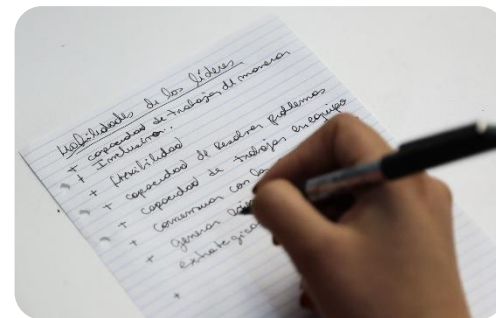 Habilidades de los líderes
+ capacidad de trabajar de manera
Inclusiva.
+ flexibilidad
+ capacidad de resolver problemas
+ capacidad de trabajar en equipo
+ comunicar con
+ generar
estrategica
+